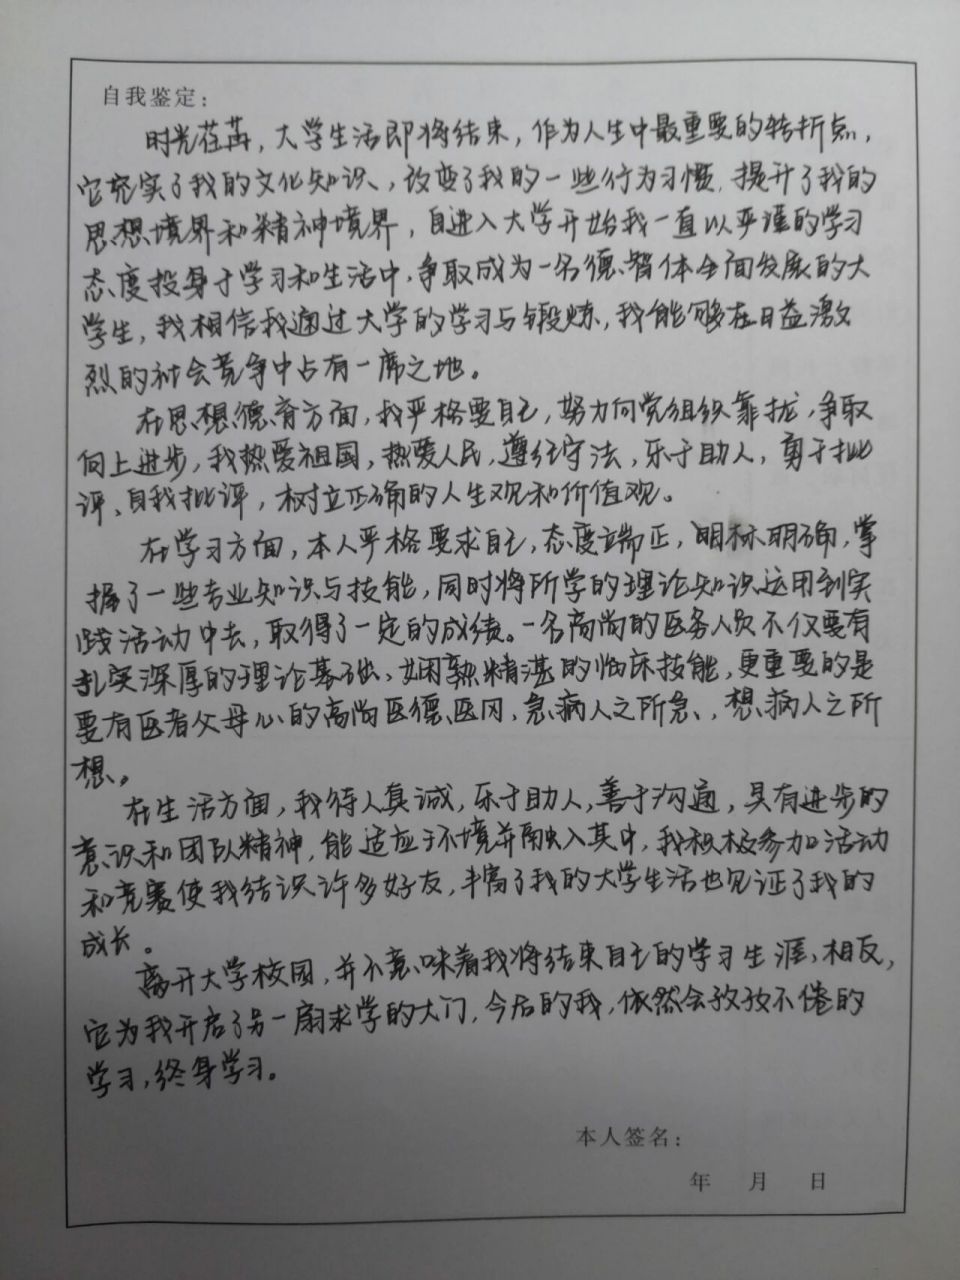 自我鉴定：
时光荏苒，大学生活即将结束，作为人生中最重要的转折点，
它充实了我的文化知识、，改变了我的一些行为习惯，提升了我的
思想境界和精神境界，自进入大学开始我一直以严谨的学习
态度投身于学习和生活中，争取成为一名德、智体全面发展的大
学生，我相信我通过大学的学习与锻炼，我能够在日益激
烈的社会竞争中占有一席之地。
在思想德育方面，我严格要自己，努力向党组织靠拢，争取
向上进步，我热爱祖国，热爱人民，遵纪守法，乐于助人，勇于批
评、自我批评，树立正确的人生观和价值观。
在学习方面，本人严格要求自己，态度端正，明标明确，掌
握了一些专业知识与技能，同时将所学的理论知识运用到实
践活动中去，取得了一定的成绩。一名高尚的医务人员不仅要有
扎实深厚的理论基础、娴熟精湛的临床技能，更重要的是
要有医者父母心的高尚医德、医风，急病人之所急、，想病人之所
想。
在生活方面，我待人真诚，乐于助人，善于沟通，具有进步的
意识和团队精神，能适应于环境并融入其中，我积极参加活动
和竞赛使我结识许多好友，丰富了我的大学生活也见证了我的
成长。
离开大学校园，并不意味着我将结束自己的学习生涯，相反，
它为我开启了另一扇求学的大门，今后的我，依然会孜孜不倦的
学习，终身学习。
本人签名：
年 月 日